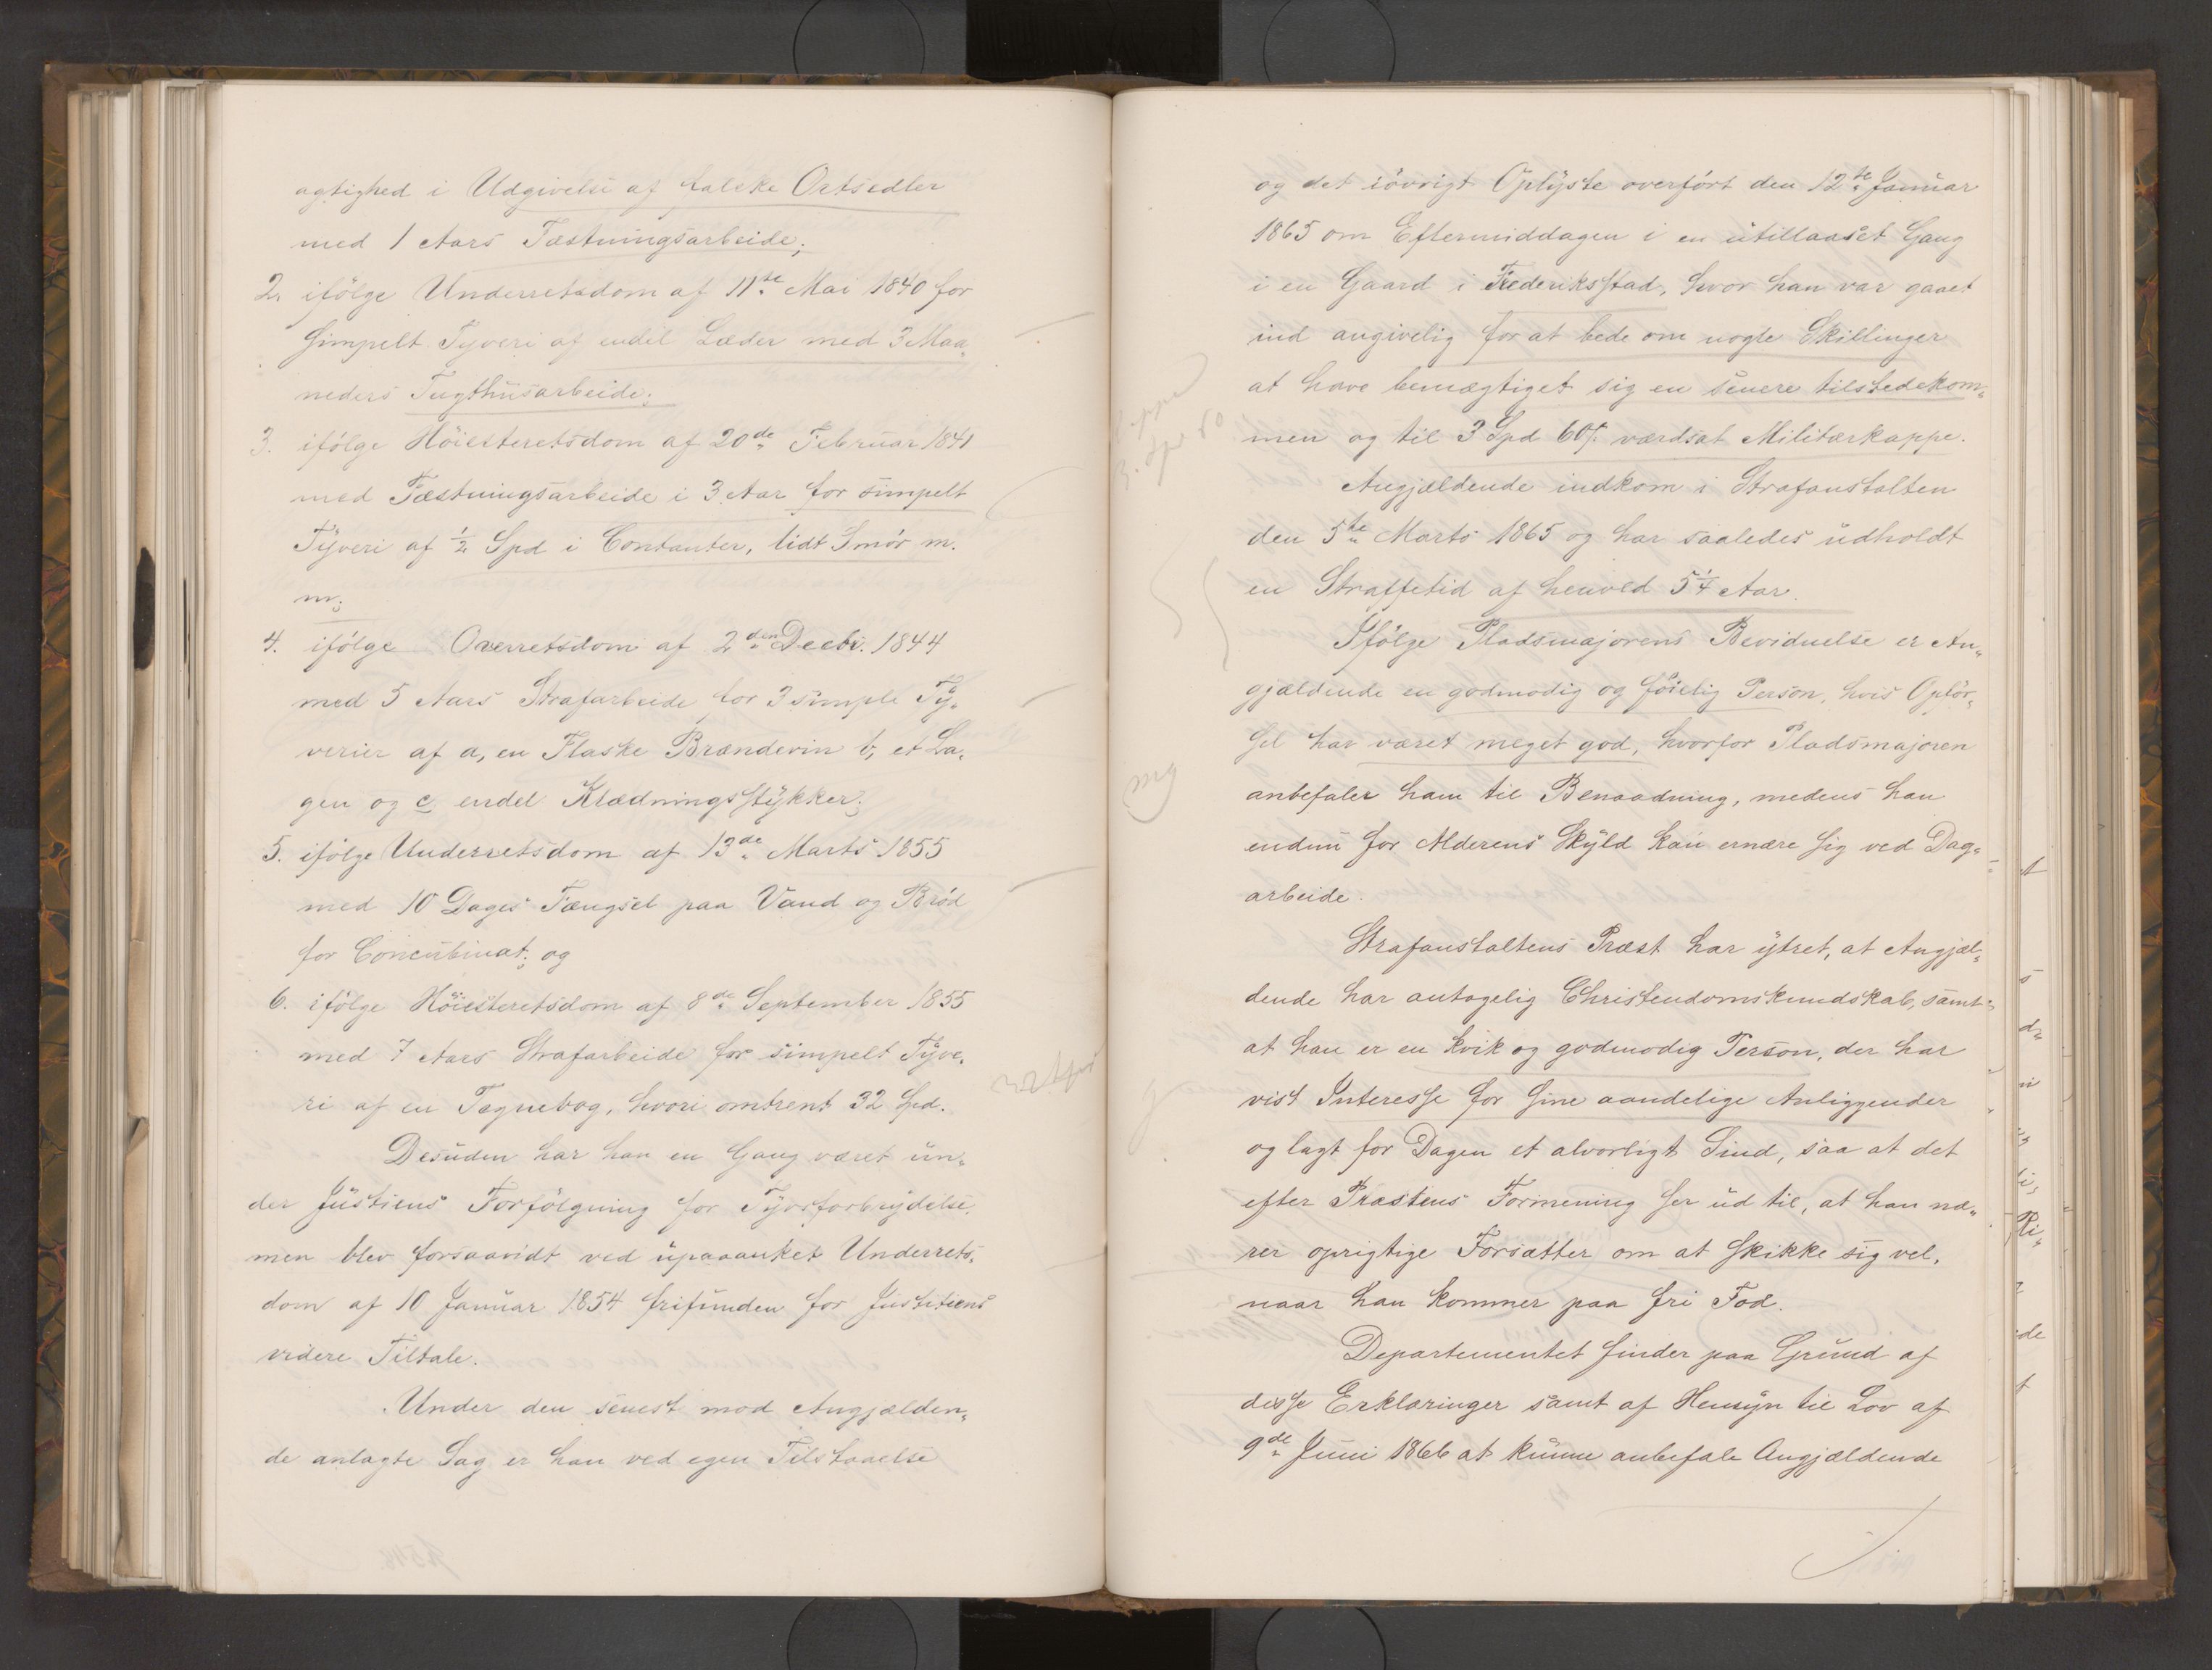 agtighed i Udgivelse af falske Ortsedler
med 1 Aars Fæstningsarbeide;
2. ifölge Underretsdom af 11te Mai 1840 for
simpelt Tyveri af endel Læder med 3 Maa„
neders Tugthusarbeide;
3. ifölge Höiesteretsdom af 20de Februar 1841
med Fæstningsarbeide i 3 Aar for simpelt
Tyveri af ½ Spd i Contanter, lidt Smör m.
m;
4. ifölge Overretsdom af 2den Decbr. 1844
med 5 Aars Strafarbeide for 3 simple Ty„
verier af a, en Flaske Brændevin b, et La„
gen og c, endel Klædningsstykker;
5. ifölge Underretsdom af 13de Marts 1855
med 10 Dages Fængsel paa Vand og Bröd
for Concubinat; og
6. ifölge Höiesteretsdom af 8de September 1855
med 7 Aars Strafarbeide for simpelt Tyve„
ri af en Tegnebog, hvori omtrent 32 Spd.
Desuden har han en Gang været un„
der Justiens Forfölgning for Tyvsforbrydelse,
men blev forsaavidt ved upaaanket Underrets„
dom af 10 Januar 1854 frifunden for Justitiens
videre Tiltale.
Under den senest mod Angjælden„
de anlagte Sag er han ved egen Tilstaaelse
og det iövrigt Oplyste overfört den 12te Januar
1865 om Eftermiddagen i en utillaaset Gang
i en Gaard i Frederiksstad, hvor han var gaaet
ind angivelig for at bede om nogle Skillinger
at have bemægtiget sig en senere tilstedekom„
men og til 3 Spd 60 s. værdsat Militærkappe.
Angjældende indkom i Strafanstalten
den 5te Marts 1865 og har saaledes udholdt
en Straffetid af henved 5¼ Aar.
Ifölge Pladsmajorens Bevidnelse er An„
gjældende en godmodig og föielig Person, hvis Opför„
sel har været meget god, hvorfor Pladsmajoren
anbefaler ham til Benaadning, medens han
endnu for Alderens Skyld kan ernære sig ved Dag„
arbeide.
Strafanstaltens Præst har ytret, at Angjæl„
dende har antagelig Christendomskundskab, samt
at han er en kvik og godmodig Person, der har
vist Interesse for sine aandelige Anliggender
og lagt for Dagen et alvorligt Sind, saa at det
efter Præstens Formening ser ud til, at han næ„
rer oprigtige Forsætter om at skikke sig vel,
naar han kommer paa fri Fod.
Departementet finder paa Grund af
disse Erklæringer samt af Hensyn til Lov af
9de Juni 1866 at kunne anbefale Angjældende